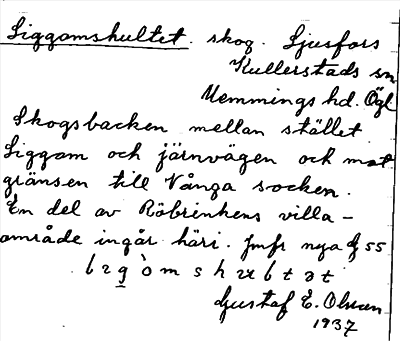 Liggomshultet. skog. Ljusfors
Kullerstads sn
Memmings hd. Ögl
Skogsbacken mellan stället
Liggom och järnvägen och mot
gränsen till Vånga socken.
En del av Röbrinkens villa-
område ingår häri. Jmfr nya § 55
Gustaf E. Olsson
1937